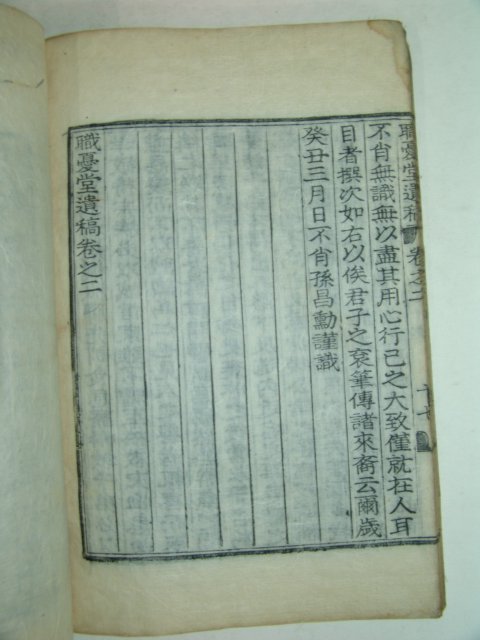 職憂堂遺稿 卷之二 十七
不肖無識無以盡其用心行己之大致僅就在人耳
目者撰次如右以俟君子之衮筆傳諸來裔云爾歲
癸丑三月日不肖孫昌勳謹識
職憂堂遺稿卷之二